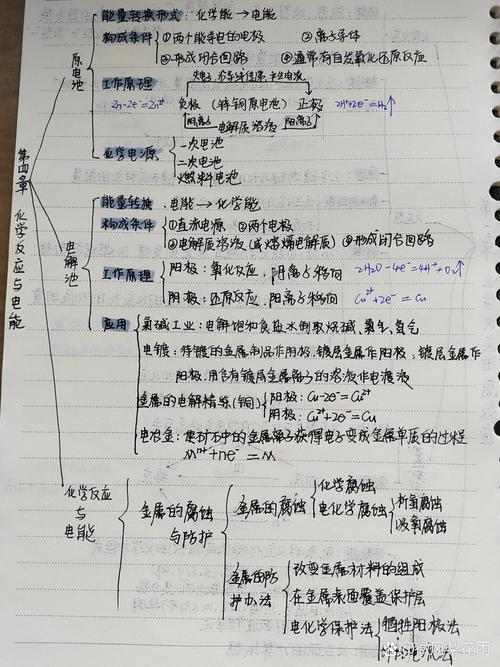 第四章 化学反应与电能
原电池
能量转换形式：化学能→电能
构成条件 ①两个能导电的电极 ②离子导体
③形成闭合回路 ④通常有自发氧化还原反应
工作原理
Zn-2e⁻=Zn²⁺ 负极（锌铜原电池）正极 2H⁺+2e⁻=H₂↑
阴离子 电解质溶液 阳离子
化学电源 一次电池
二次电池
燃料电池
电解池
能量转换：电能→化学能
构成条件 ①直流电源 ②两个电极
③电解质溶液（或熔融电解质）④形成闭合回路
工作原理 阳极：氧化反应，阴离子移向 2H₂O-4e⁻=4H⁺+O₂↑
阴极：还原反应，阳离子移向 Cu²⁺+2e⁻=Cu
应用 氯碱工业：电解饱和食盐水制取烧碱、氯气、氢气
电镀：待镀的金属制品作阴极，镀层金属作阳极，镀层金属作
阳极，用含有镀层金属离子的溶液作电镀液
金属的电解精炼（铜） 阳极：Cu-2e⁻=Cu²⁺
阴极：Cu²⁺+2e⁻=Cu
电冶金：使矿石中的金属离子获得电子变成金属单质的过程
Mⁿ⁺+ne⁻=M
化学反应与电能
金属的腐蚀与防护
金属的腐蚀 化学腐蚀
电化学腐蚀 析氢腐蚀
吸氧腐蚀
金属的防护办法 改变金属材料的组成
在金属表面覆盖保护层
电化学保护法 牺牲阳极法